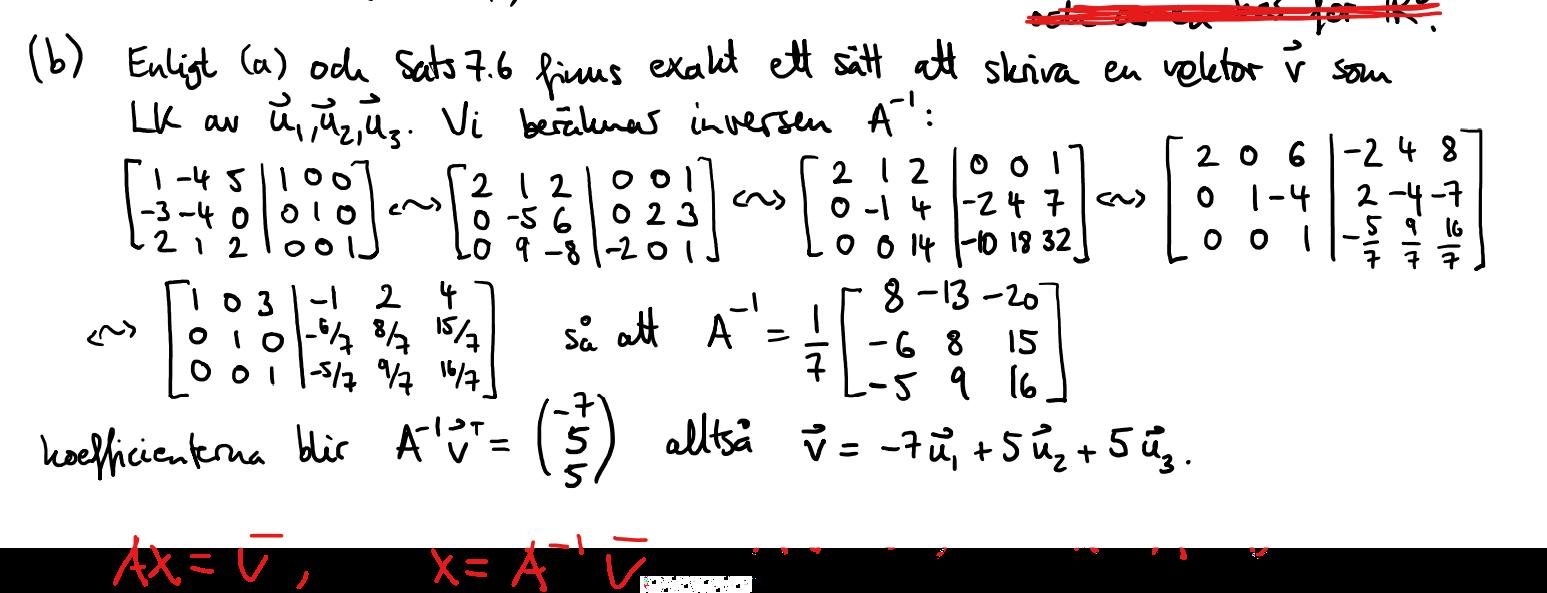 (b) Enligt (a) och Sats 7.6 finns exakt ett sätt att skriva en vektor v⃗ som
LK av u⃗₁, u⃗₂, u⃗₃. Vi beräknar inversen A⁻¹:
[1 -4 5 | 1 0 0; -3 -4 0 | 0 1 0; 2 1 2 | 0 0 1] ⇝ [2 1 2 | 0 0 1; 0 -5 6 | 0 2 3; 0 9 -8 | -2 0 1] ⇝ [2 1 2 | 0 0 1; 0 -1 4 | -2 4 7; 0 0 14 | -10 18 32] ⇝ [2 0 6 | -2 4 8; 0 1 -4 | 2 -4 -7; 0 0 1 | -5/7 9/7 16/7]
⇝ [1 0 3 | -1 2 4; 0 1 0 | -6/7 8/7 15/7; 0 0 1 | -5/7 9/7 16/7] så att A⁻¹ = 1/7 [8 -13 -20; -6 8 15; -5 9 16]
koefficienterna blir A⁻¹v⃗ᵀ = (-7; 5; 5) alltså v⃗ = -7u⃗₁ + 5u⃗₂ + 5u⃗₃.
AX = v̄, X = A⁻¹ v̄